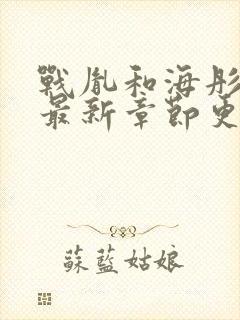 戰胤和海彤
最新章節更
蘇藍姑娘